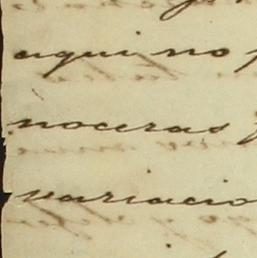 aqui no
noceras
variacio